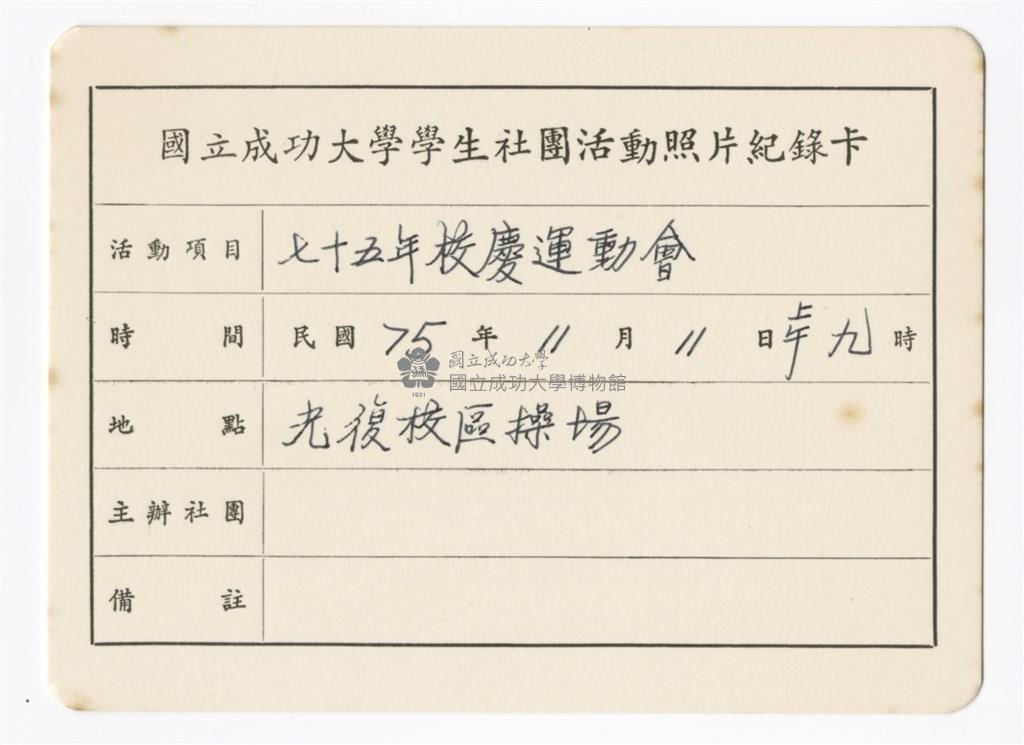 國立成功大學學生社團活動照片紀錄卡
活動項目 七十五年校慶運動會
時間 民國 75 年 11 月 11 日 上午 九 時
國立成功大學
國立成功大學博物館
1931
地點 光復校區操場
主辦社團
備註